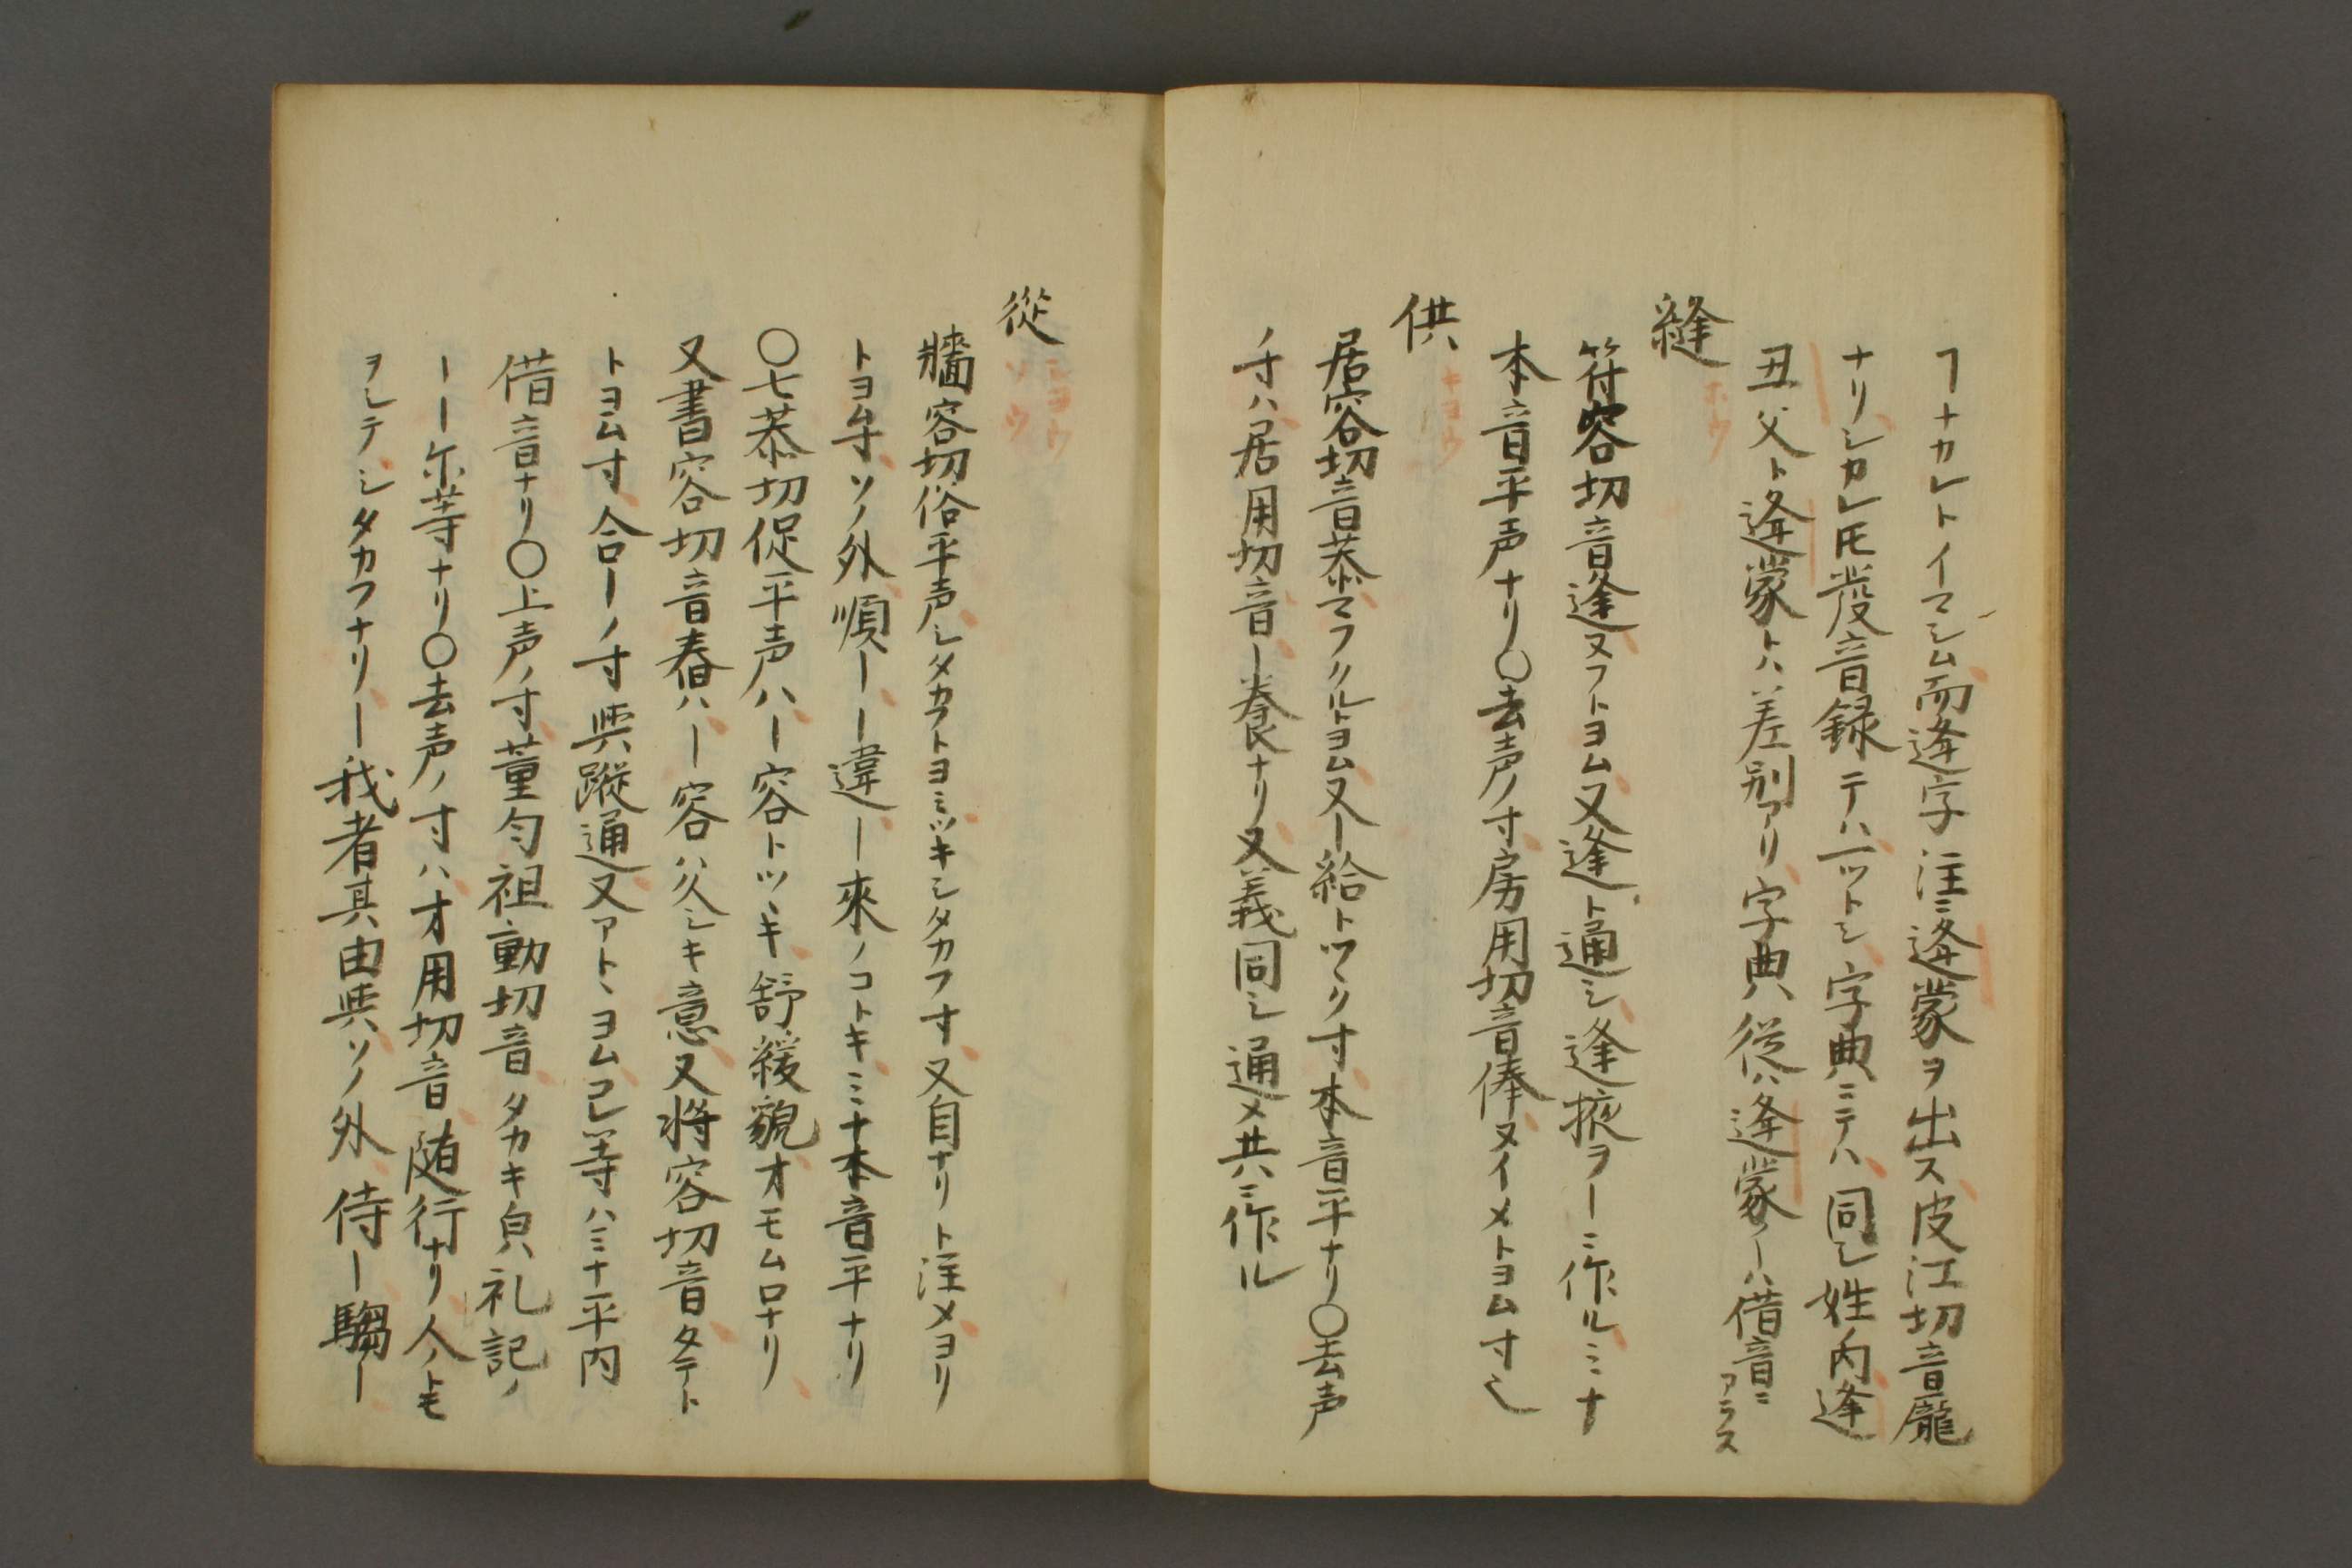 ヿナカレトイマシム而逄字注ニ逄蒙ヲ出ス皮江切音龐
ナリシカレ𪜈發音録テハ一ツトシ字典ニテハ同シ姓内逄
丑父ト逄蒙トハ差別アリ字典從ハ逄蒙ノーハ借音ニアラス
縫
ホウ
符容切音逢ヌフトヨム又逢ト通シ逢掖ヲーニ作ルミナ
本音平声ナリ〇去声ノ寸房用切音俸ヌイメトヨム寸也
供
キヨウ
居容切音恭マフクルトヨム又ー給トツヽク寸本音平ナリ〇去声
ノ寸ハ居用切音ー養ナリ又義同シ通メ共ニ作ル
從
シヨウ
ソウ
牆容切俗平声シタカフトヨミツキシタカフ寸又自ナリト注メヨリ
トヨム寸ソノ外順ーー違ー來ノコトキミナ本音平ナリ
〇七恭切促平声ハー容トツヽキ舒緩貌オモムロナリ
又書容切音舂ハー容ハ久シキ意又将容切音タテト
トヨム寸合ーノ寸與蹤通又アトヽヨムコレ等ハミナ平内
借音ナリ〇上声ノ寸董匀祖動切音タカキ皃礼記ノ
ーー尓等ナリ〇去声ノ寸ハ才用切音随行ナリ人ノトモ
ヲシテシタカフナリー我者其由與ソノ外侍ー騶ー